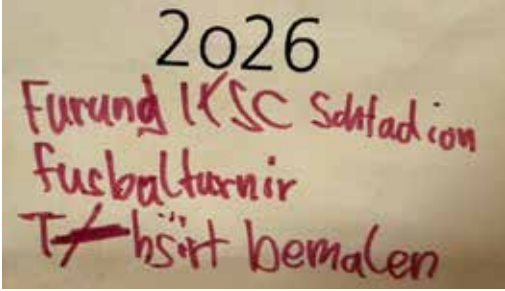 2026
Furung KSC Schtadion
fusbalturnir
T-hsört bemalen